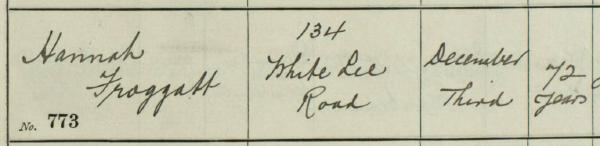 Hannah
Froggatt
No. 773
134
White Lee
Road
December
Third
72
years